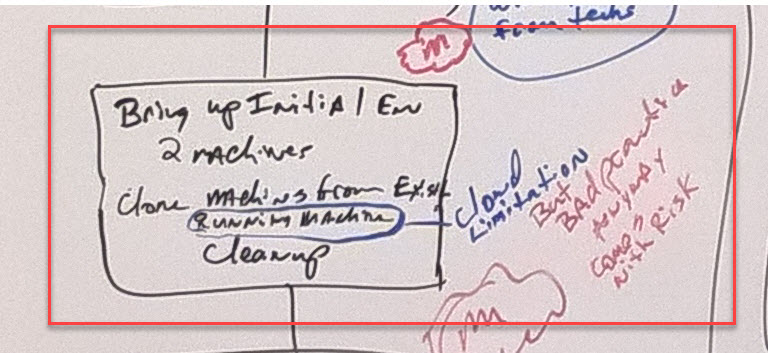 from techs
m
Bring up Initial Env
2 machines
Clone machines from Exist
Running Machine
Cleanup
Cloud
Limitation
But
BAD practice
anyway
comes
with Risk
m